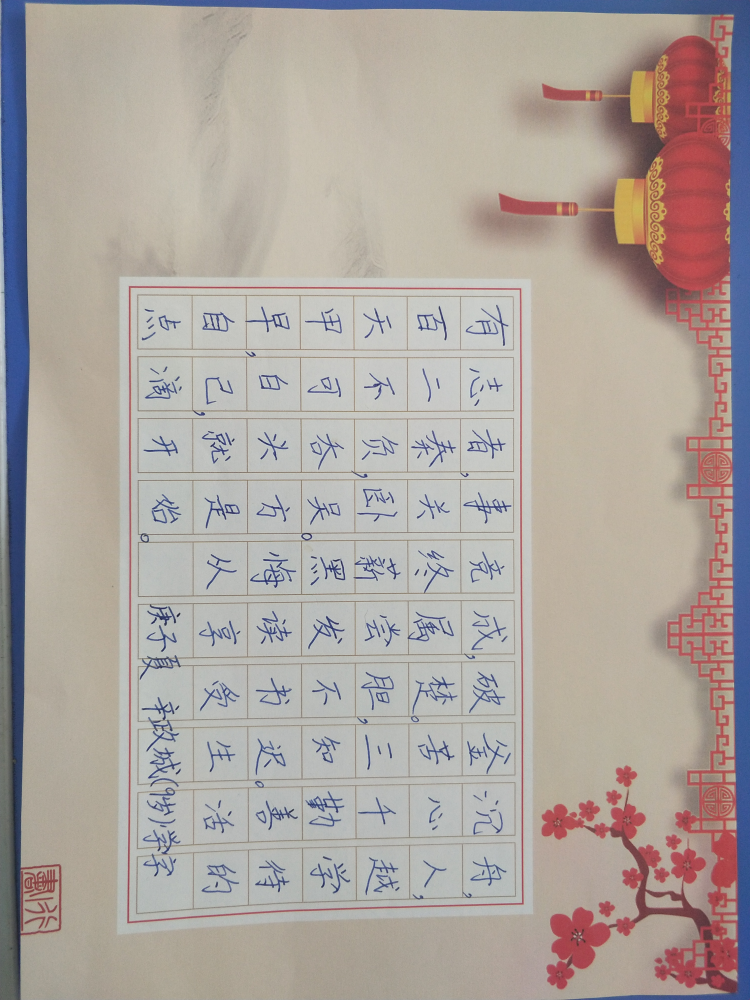 有志者,事竟成,破釜沉舟,
百二秦关终属楚。苦心人,
天不负,卧薪尝胆,三千越
甲可吞吴。黑发不知勤学
早,白头方悔读书迟。善待
自己,就是从享受生活的
点滴开始。 庚子夏 辛政城(9岁)学字